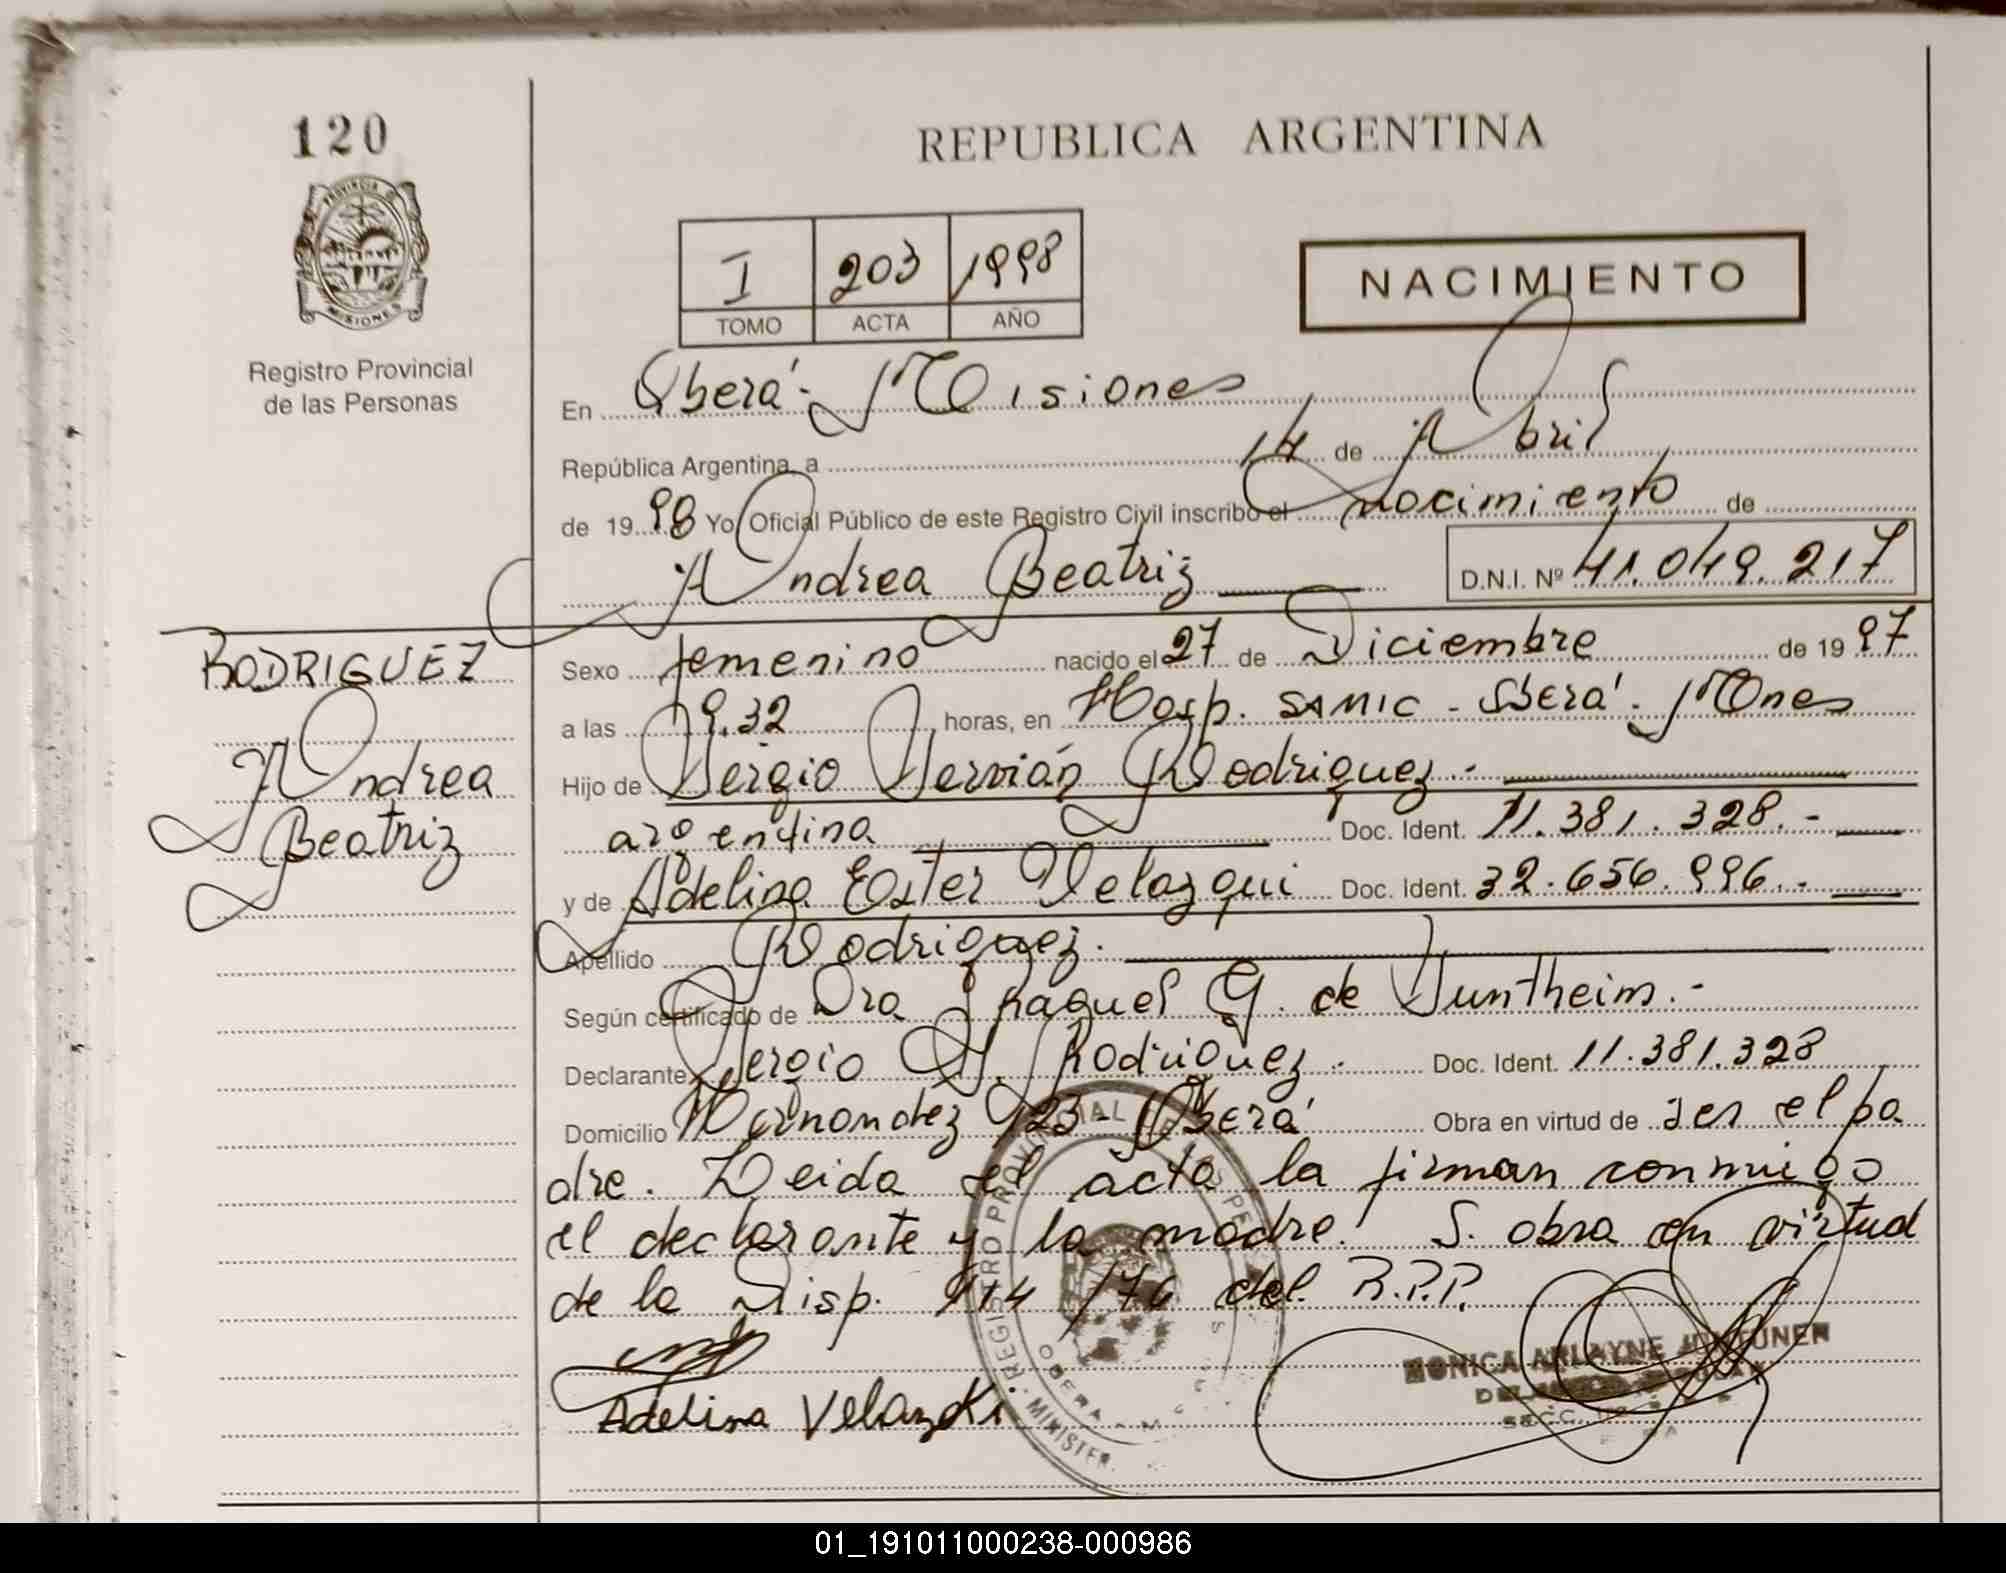 120
REPUBLICA ARGENTINA
PROVINCIA DE
MISIONES
Registro Provincial
de las Personas
I 203 1998
TOMO ACTA AÑO
NACIMIENTO
En Oberá - Misiones
República Argentina, a 14 de Abril
de 1998 Yo Oficial Público de este Registro Civil inscribo el nacimiento de
Andrea Beatriz D.N.I. Nº 41.049.217
RODRIGUEZ
Andrea
Beatriz
Sexo femenino nacido el 27 de Diciembre de 1997
a las 9.32 horas, en Hosp. SAMIC - Oberá - Mones
Hijo de Sergio Rodriguez.-
argentina Doc. Ident. 11.381.328.-
y de Adelina Ester Velazqui Doc. Ident. 32.656.996.-
Apellido Rodriguez.
Según certificado de Dra Raquel G. de
Declarante Sergio Rodriguez. Doc. Ident. 11.381.328
Domicilio 123 - Oberá Obra en virtud de ser el pa
dre. Leida el acta la firman conmigo
el declarante y la madre. S. obra en virtud
de la Disp. 114/76 del R.P.P.
Adelina Velazcki
REGISTRO PROVINCIAL DE LAS PE
OBERA
MINISTER.
MONICA ARLAYNE
SECC.
01_191011000238-000986